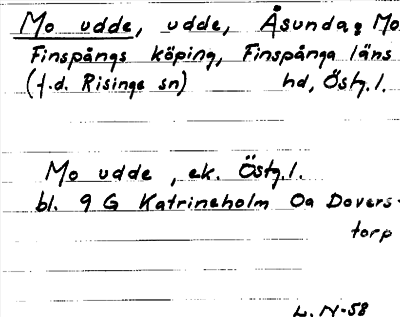 Mo udde, udde, Åsunda, Mo
Finspångs köping, Finspånga läns
(f.d. Risinge sn) hd, Östg.l.
Mo udde, ek. Östg.l.
bl. 9 G Katrineholm Oa Dovers-
torp
L. N-58